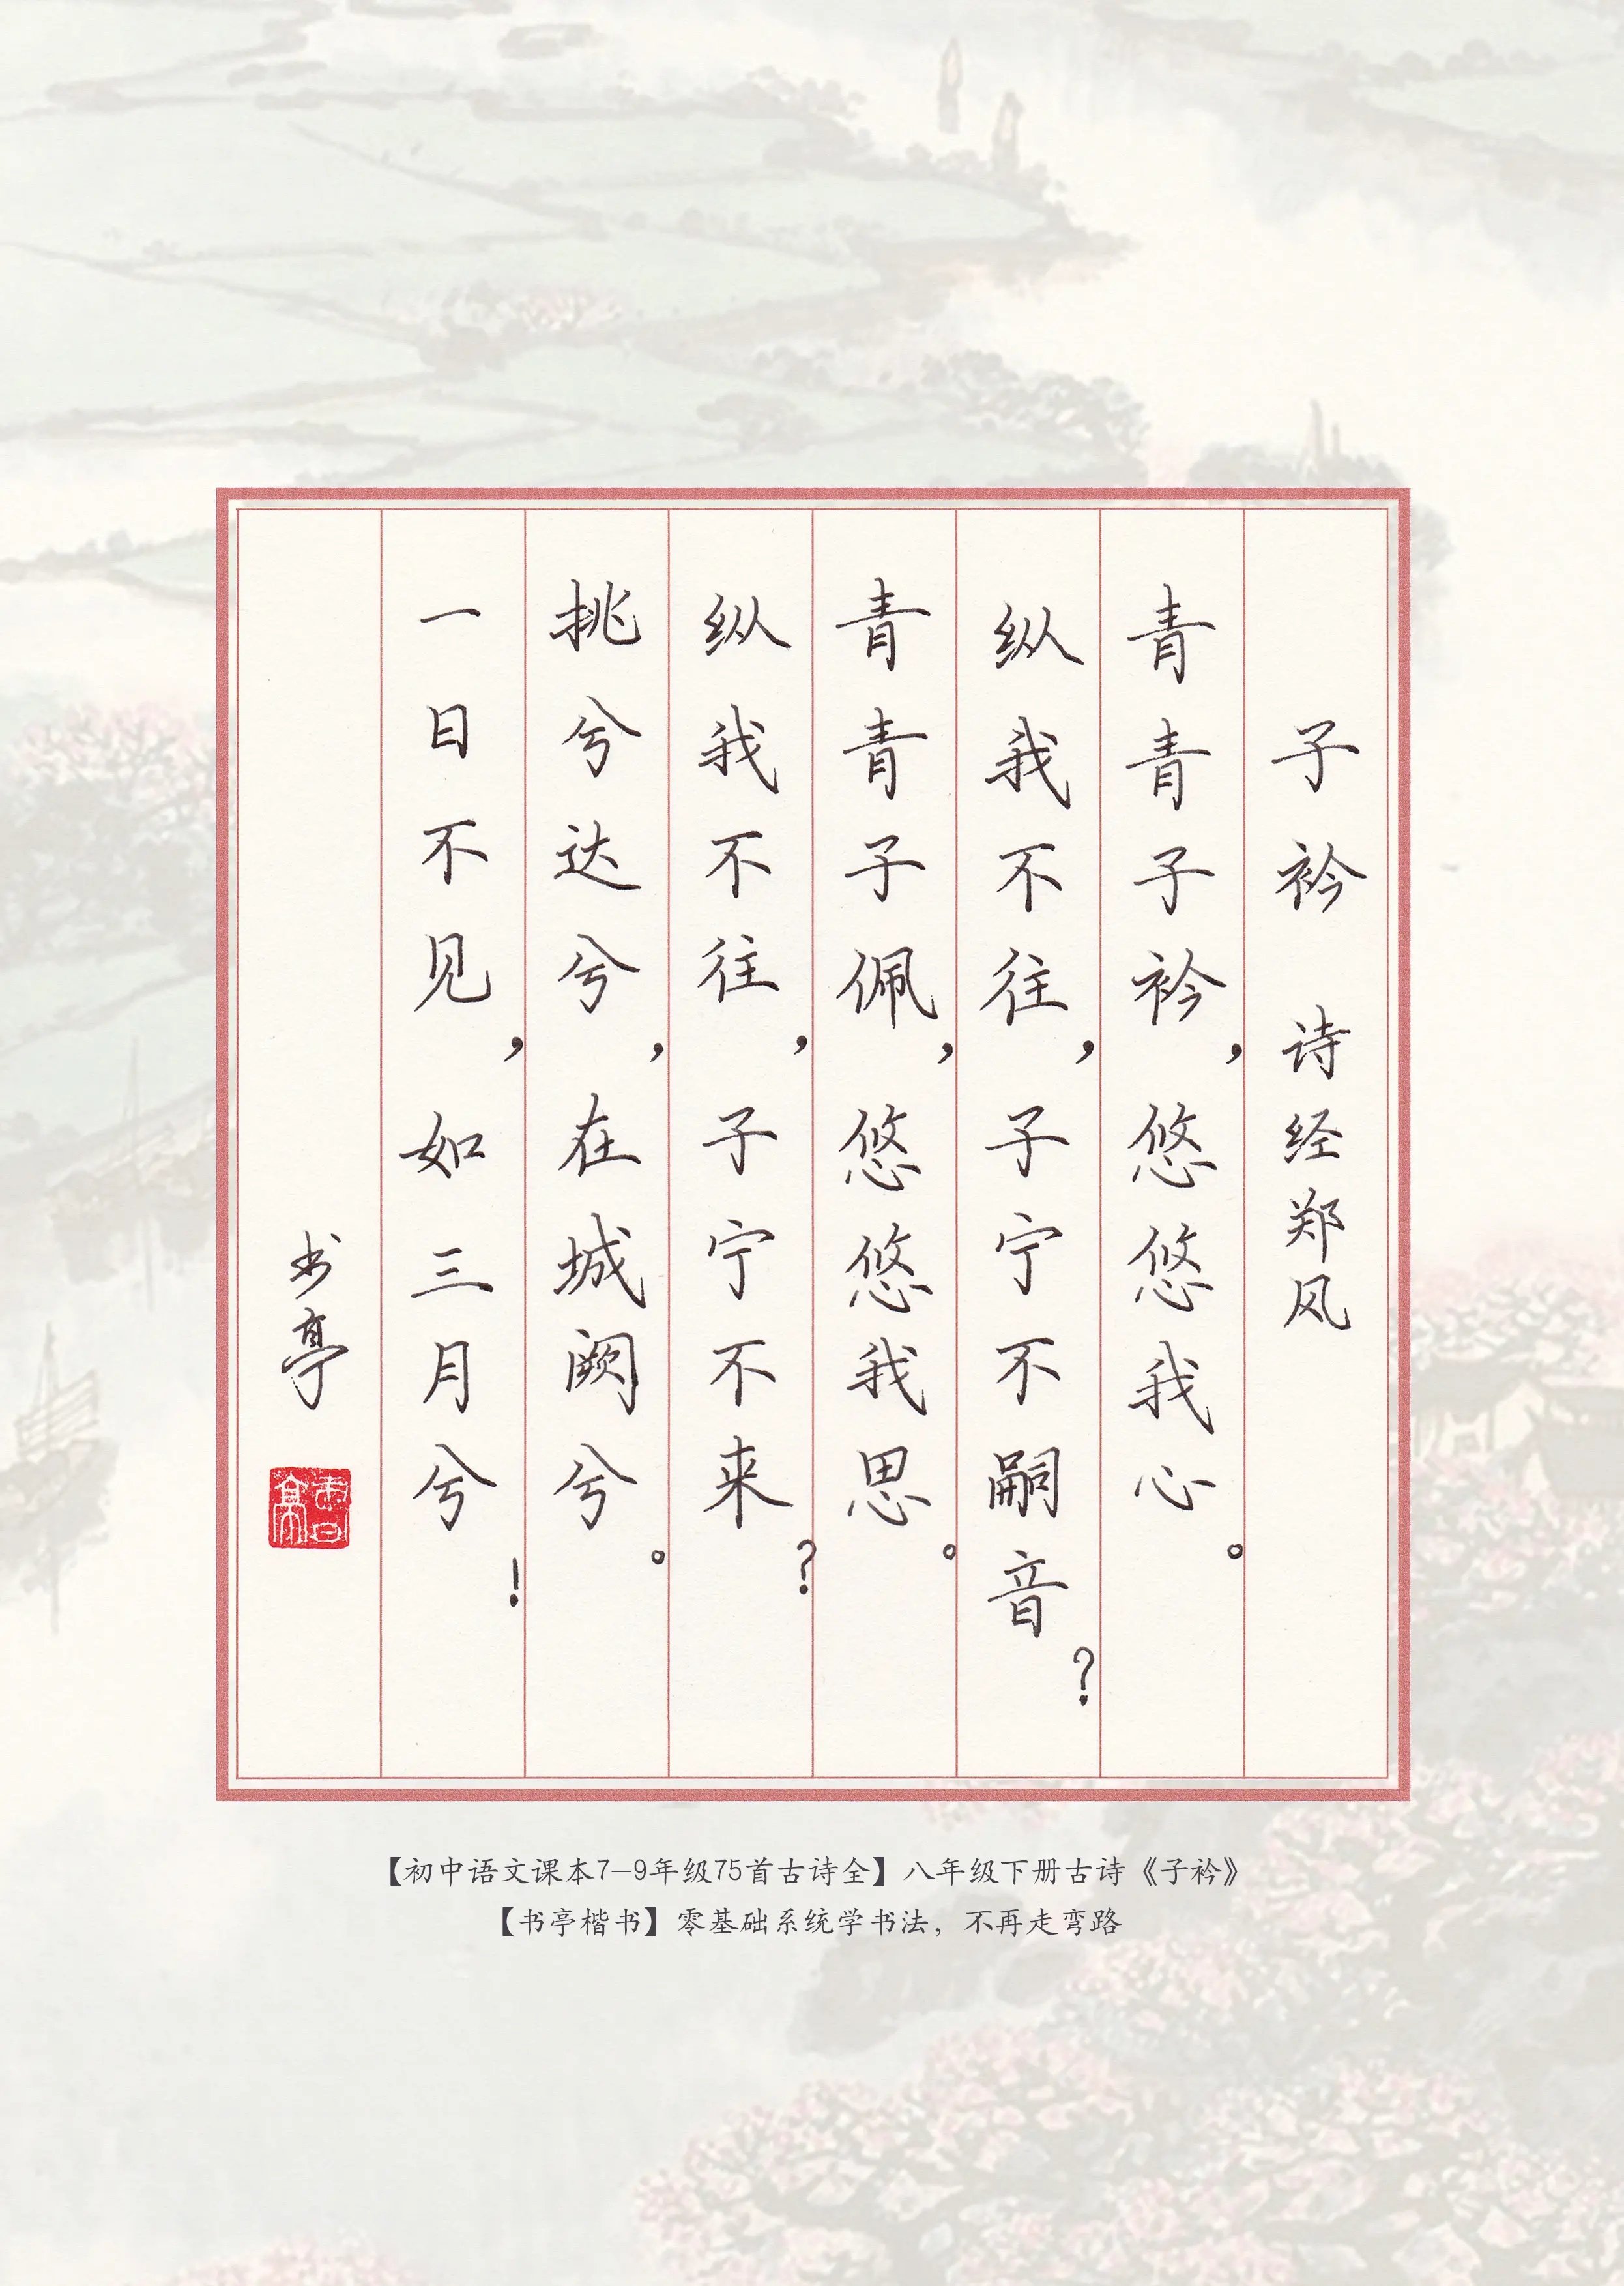 子衿 诗经郑风
青青子衿，悠悠我心。
纵我不往，子宁不嗣音？
青青子佩，悠悠我思。
纵我不往，子宁不来？
挑兮达兮，在城阙兮。
一日不见，如三月兮！
书亭
书亭
【初中语文课本7-9年级75首古诗全】八年级下册古诗《子衿》
【书亭楷书】零基础系统学书法，不再走弯路